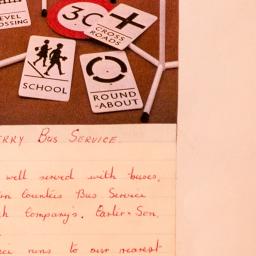 EVEL
OSSING
30
CROSS
ROADS
SCHOOL
ROUND
ABOUT
ERRY BUS SERVICE.
well served with buses,
rn Counties Bus Service
Company's. Carter & Son,
runs to our nearest